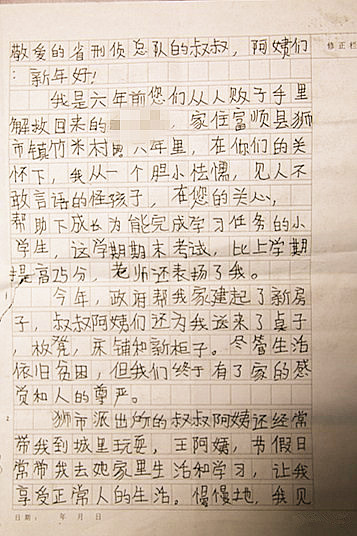 修正栏
敬爱的省刑侦总队的叔叔，阿姨们
：新年好！
我是六年前您们从人贩子手里
解救回来的　　　，家住富顺县狮
市镇竹米村　六年里，在你们的关
怀下，我从一个胆小怯懦，见人不
敢言语的怪孩子，在您的关心，
帮助下成长为能完成学习任务的小
学生，这学期期末考试，比上学期
提高25分，老师还表扬了我。
今年，政府帮我家建起了新房
子，叔叔阿姨们还为我运来了桌子
，板凳，床铺和新柜子。尽管生活
依旧贫困，但我们终于有了家的感
觉和人的尊严。
狮市派出所的叔叔阿姨还经常
带我到城里玩耍，王阿姨，节假日
常带我去她家里生活和学习，让我
享受正常人的生活。慢慢地，我见
日期：　年　月　日